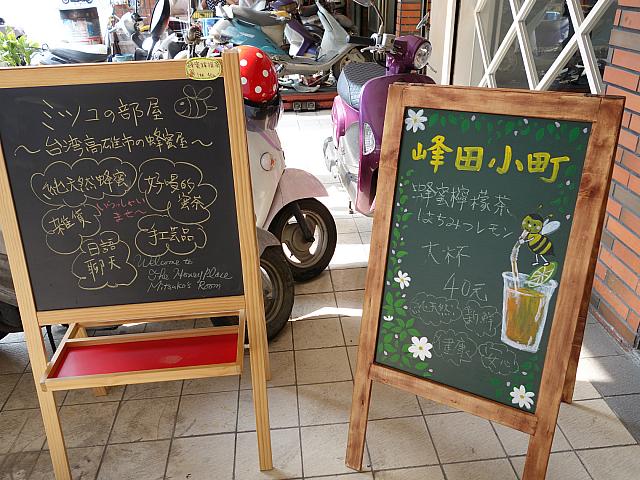 ミツコの部屋
～台湾高雄市の蜂蜜屋～
純天然蜂蜜
好喝的
蜜茶
雑貨
いらっしゃい
ませ～
手工芸品
日語
聊天
Welcome to
The Honey Place
Mitsuko's Room
峰田小町
蜂蜜檸檬茶
はちみつレモン
大杯
40元
純天然
新鮮
健康
安心